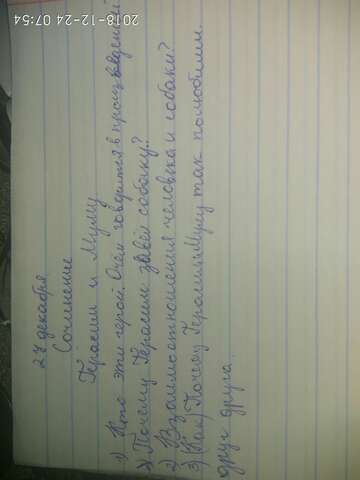 2018-12-24 07:54
24 декабря
Сочинение
Герасим и Муму
1) Кто эти герои. О чём говорится в произведений
2) Почему Герасим завёл собаку?
2) Взаимоотношения человека и собаки?
3) (Как) Почему Герасим и Муму так полюбили
друг друга.